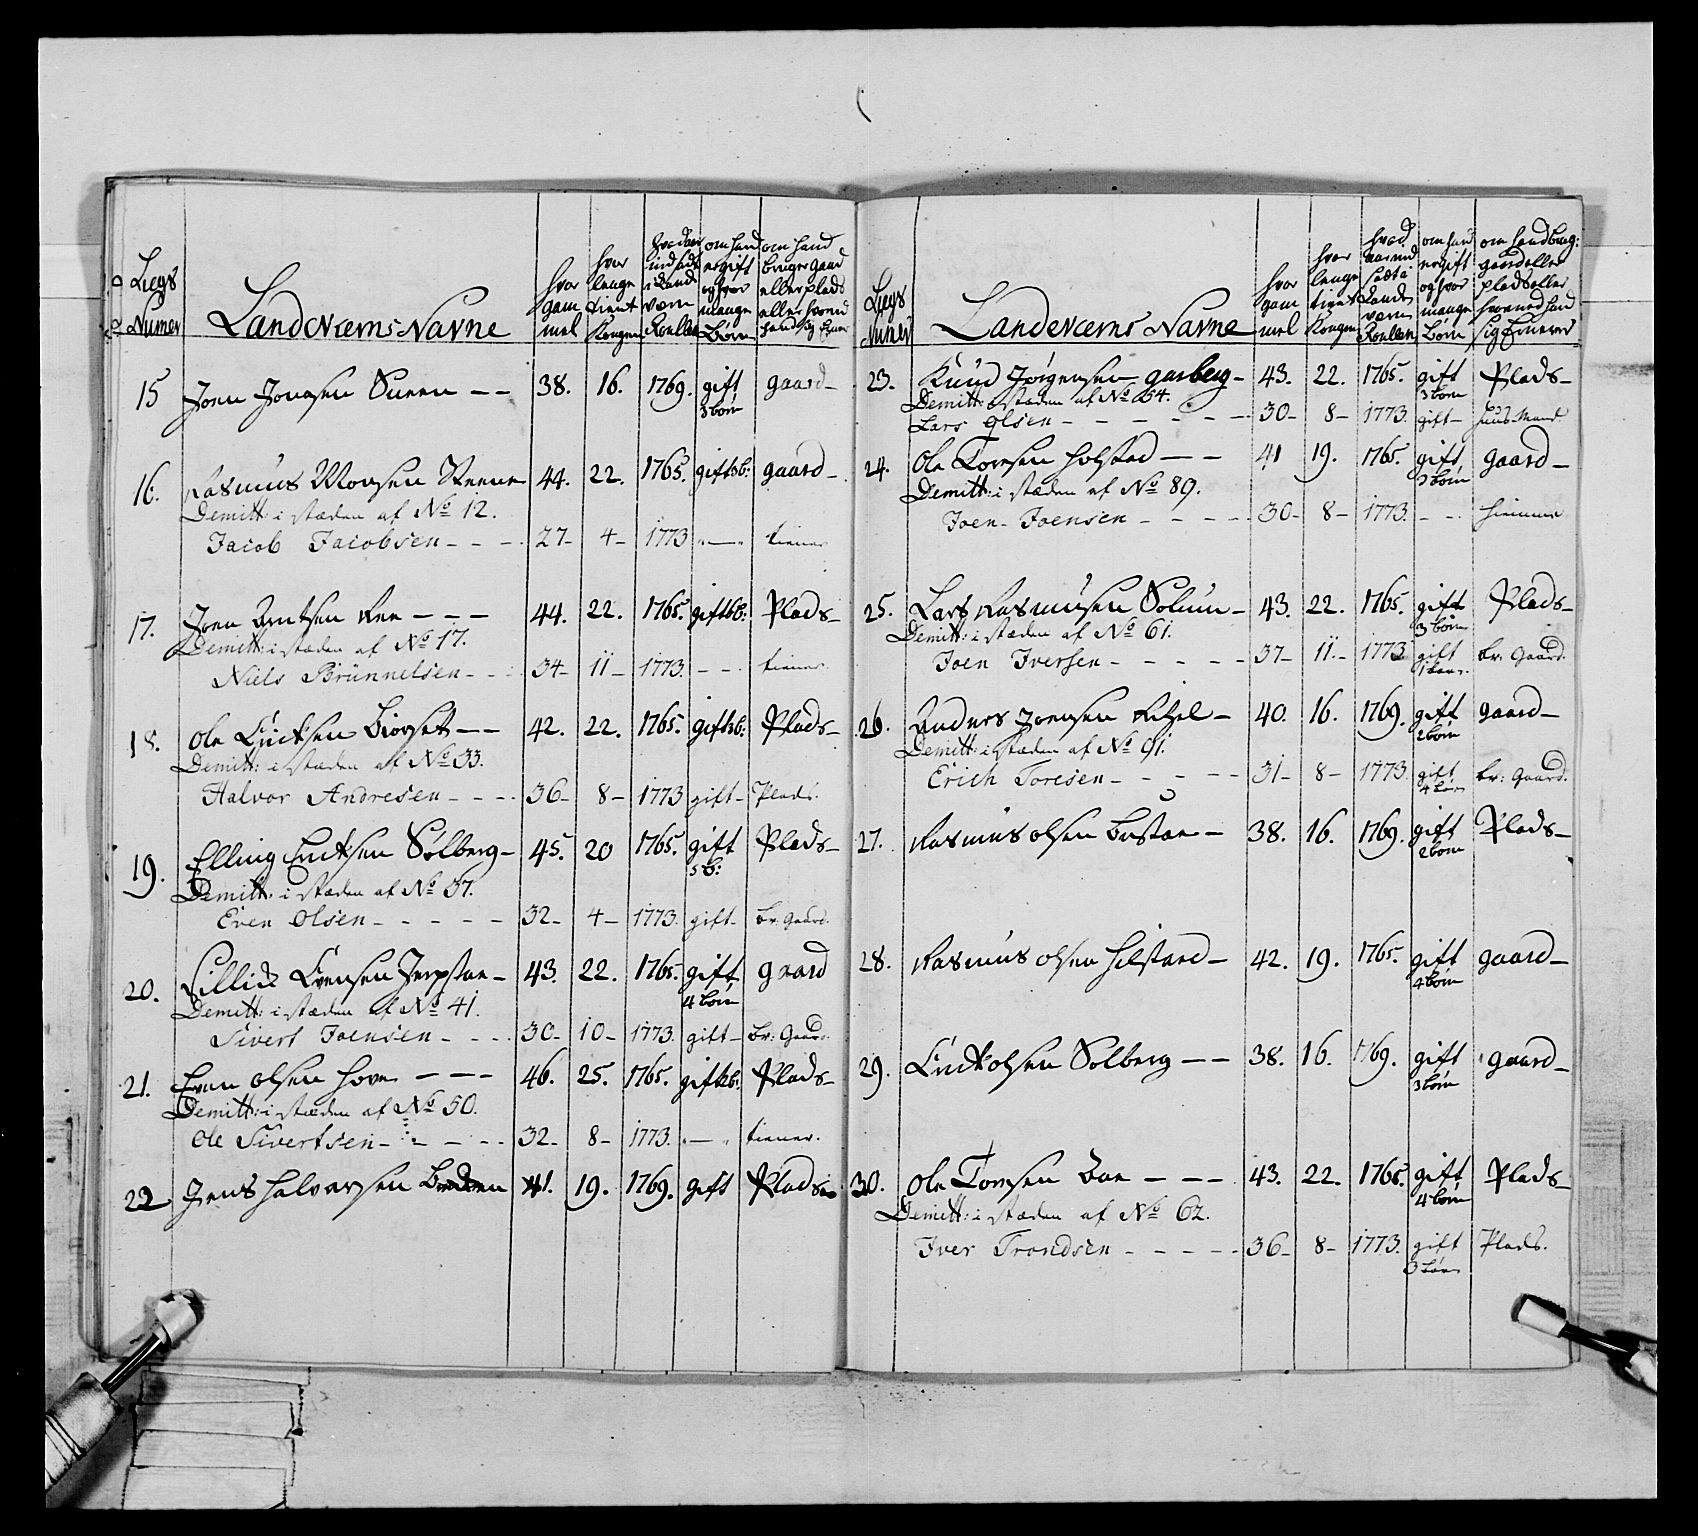 Legs Numer
LandVærns Navne
hvor gam mel
hvor lenge tient Kongen
om hand er gift og hvor mange Børn
om hand bruger gaard eller plads
15 Joen Jonsen 38. 16. 1769. gift 3 börn gaard
16. Rasmus Monsen 44. 22. 1765. gift 3b: gaard
Demitt: i stæden af No 12.
Jacob Jacobsen 27 4 1773 tiener
17. Joen 44. 22. 1765. gift 6b: Plads
Demitt: i stæden af No 17.
Niels Brünnelsen 34 11 1773. tiener
18. Ole Erichsen 42. 22. 1765. gift 3b: Plads
Demitt: i stæden af No 33.
Halvor Andresen 36 8 1773 gift Plads.
19. Elling Erichsen Solberg 45. 20 1765. gift 5 b: Plads
Demitt: i stæden af No 37.
Even Olsen 32 4 1773. gift br: Gaard.
20. Evensen 43. 22. 1765. gift 4 börn gaard
Demitt: i stæden af No 41.
Sivert Joensen 30 10 1773. gift br: Gaard.
21. Even Olsen Hove 46. 25. 1765. gift 2b: Plads
Demitt: i stæden af No 50.
Ole Sivertsen 32 8 1773. tiener.
22 Jens Halvorsen 41. 19. 1769. gift Plads
Legs Numer
Landeværns Navne
hvor gam mel
hvor lenge tient Kongen
hvad aar ind sadt i Lands værn Roullen
om hand er gift og hvor mange Börn
om hand brug: gaard eller plads eller hvormed hand sig Ernerer
23. Knud Jörgensen garberg 43. 22. 1765. gift 3 börn Plads
Demitt: i stæden af No 54.
Lars Olsen 30 8 1773. gift huus Mand
24. Ole Tomsen Holstad 41 19. 1765. gift 3 börn gaard
Demitt: i stæden af No 89.
Joen Joensen 30 8 1773. hiemme
25. Lars Rasmusen Solum 43. 22. 1765. gift 3 börn Plads
Demitt: i stæden af No 61.
Joen Iversen 37 11. 1773. gift 1 barn. br: Gaard.
26. Anders Joensen 40. 16. 1769. gift 2 börn gaard
Demitt: i stæden af No 91.
Erich Toresen 31 8 1773. gift 4 börn br: Gaard.
27. Rasmus Olsen 38. 16. 1769. gift 2 born Plads
28. Rasmus Olsen 42. 19. 1765. gift 4 börn gaard
29. Erick Olsen Solberg 38. 16. 1769. gift 3 börn gaard
30. Ole Tomsen 43. 22. 1765. gift 4 börn Plads
Demitt: i stæden af No 62.
Iver Trondsen 36 8 1773. gift 3 börn Plads.